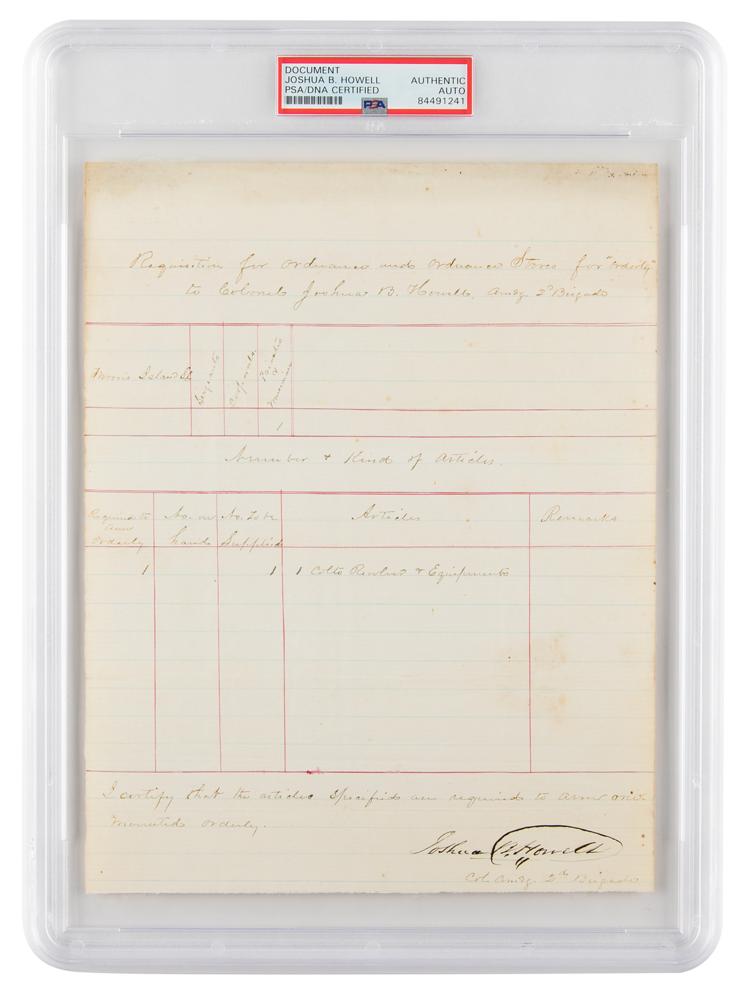 DOCUMENT
JOSHUA B. HOWELL
PSA/DNA CERTIFIED
AUTHENTIC
AUTO
84491241
PSA
Requisition for Ordnance and Ordnance Stores for "Orderly"
to Colonel Joshua B. Howell, Comdg 2d Brigade
Morris Island
Sergeants
Corporals
Privates
1
Number & Kind of Articles.
Required to
arm
Orderly
No. on
hand
No. to be
Supplied
Articles
Remarks
1
1
1 Colts Revolver & Equipments
I certify that the articles specified are required to arm one
mounted orderly.
Joshua B. Howell
Col. Comdg. 2d Brigade